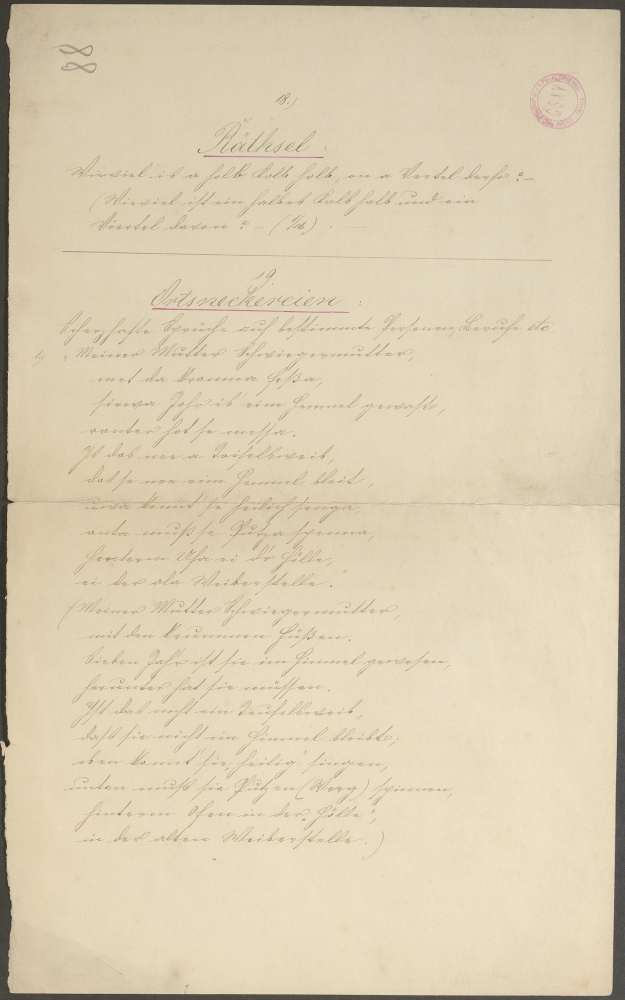 88
18.)
Räthsel.
Wieviel is a holb Kolb holb, on a Vertel derfo?–
(Wieviel ist ein halbes Kalb halb und ein
Viertel davon? – (1/4). —
19
Ortsneckereien:
Scherzhafte Sprüche auf bestimmte Personen, Berufe etc.
1) „Meiner Mutter Schwiegermutter,
met da kromma Fessa,
siewa Johr is eim Hemmel gewast,
ronter hot se messa.
Is dos nee a Teifelsweib,
dos se nee eim Hemmel bleit,
uwa kennt se heilich senga,
onta muß se Putza spenna,
hinterm Ofa ei dr Hölle,
ei der ala Weiberstelle."
(Meiner Mutter Schwiegermutter,
mit den krummen Füßen.
Sieben Jahr ist sie im Himmel gewesen,
herunter hat sie müssen.
Ist das nicht ein Teufelsweib,
daß sie nicht im Himmel bleibt;
oben konnt' sie „heilig" singen,
unten muß sie Putzen (Werg) spinnen,
hinterm Ofen in der „Hölle",
in der alten Weiberstelle.)